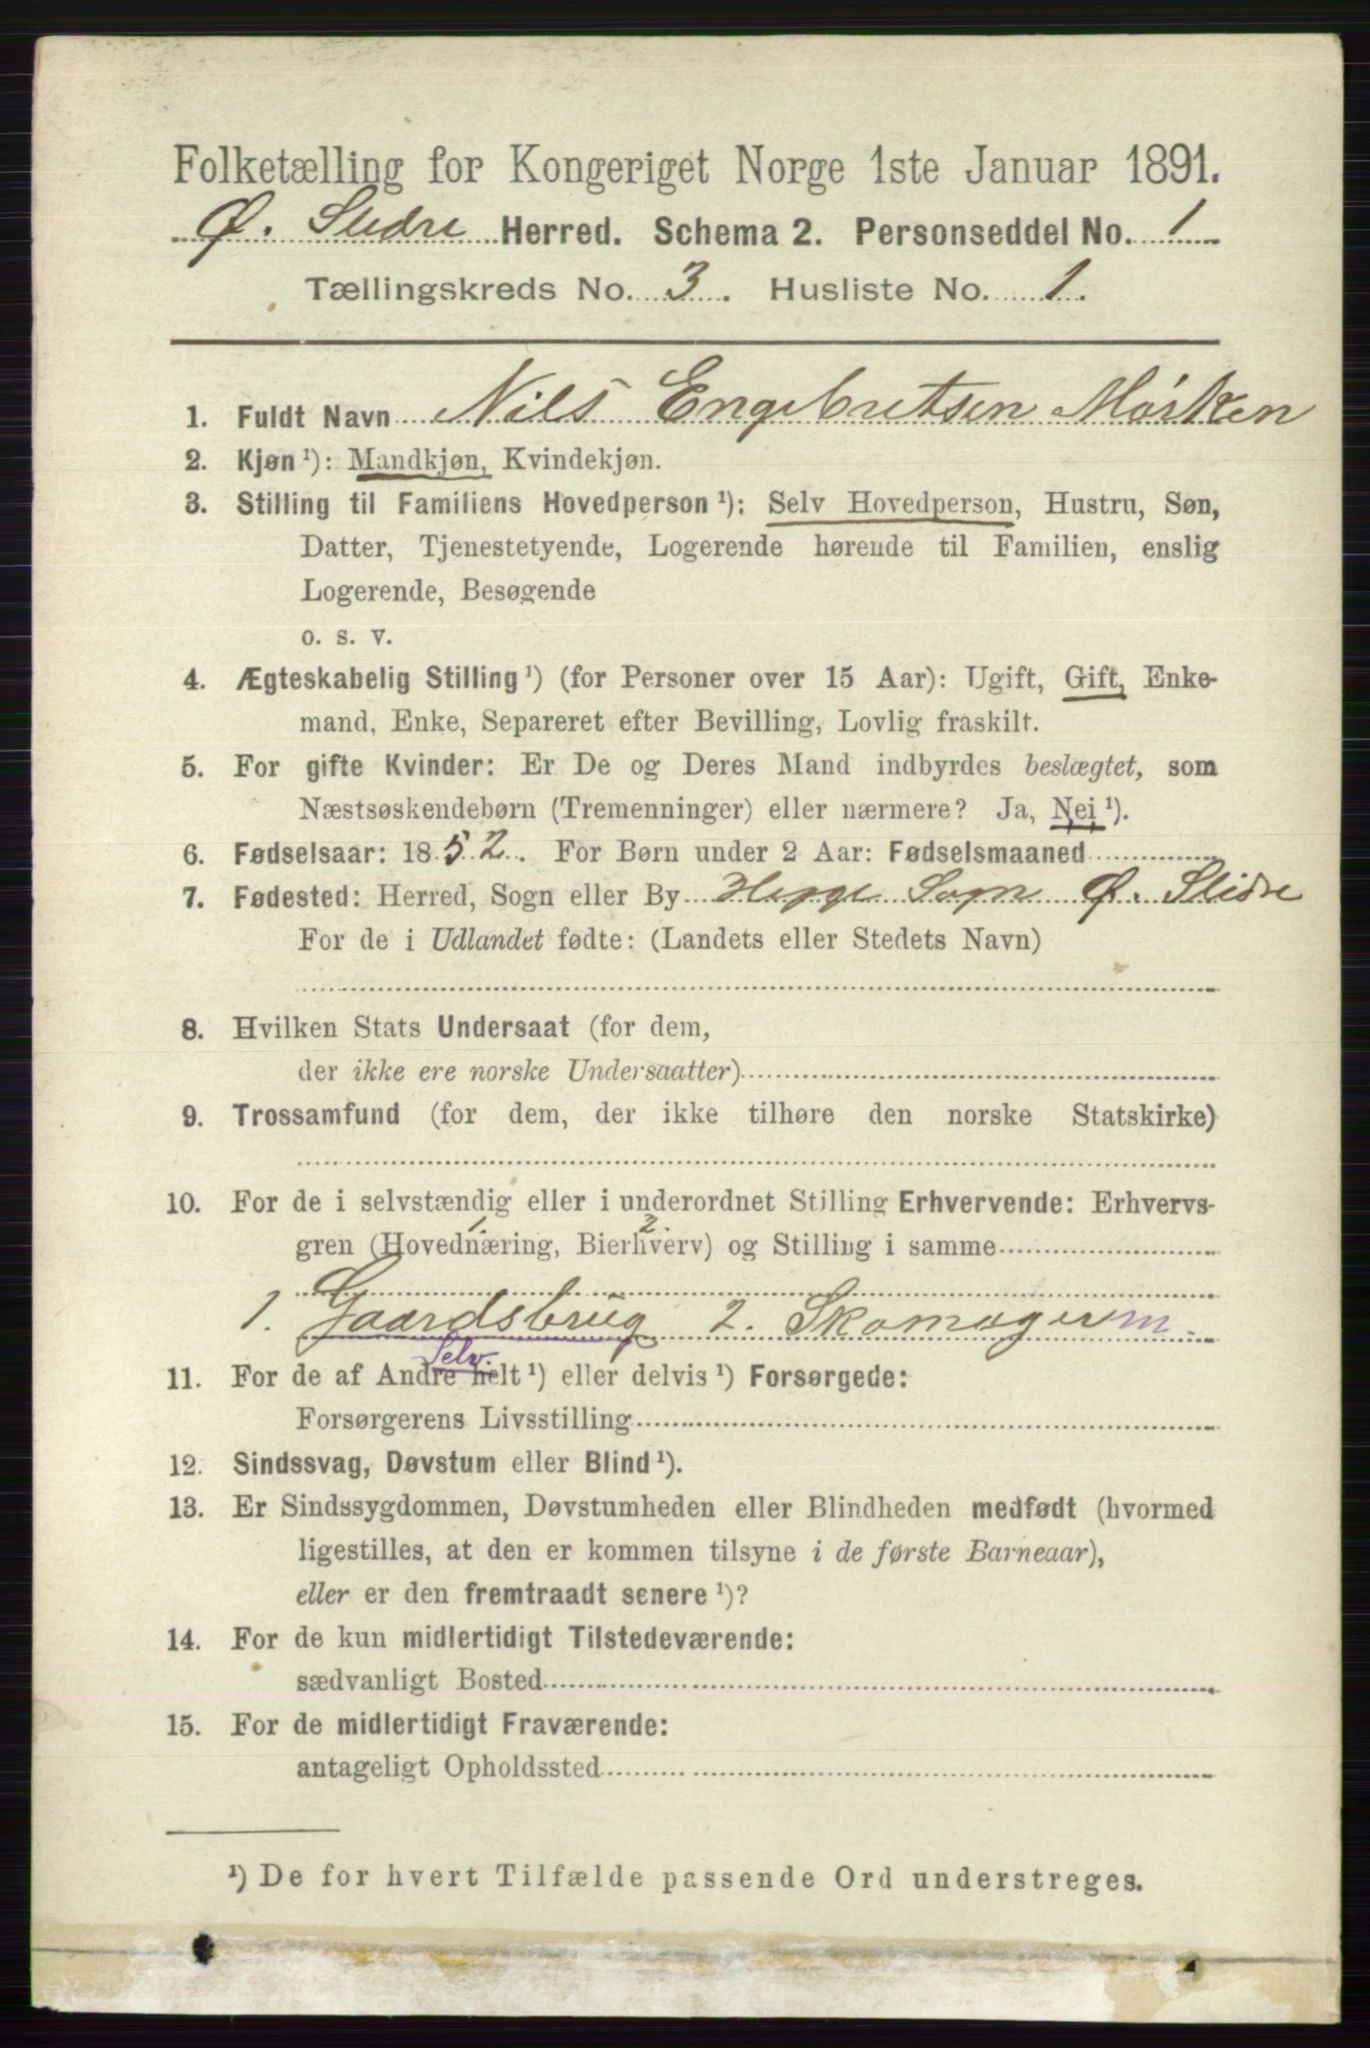 Folketælling for Kongeriget Norge 1ste Januar 1891.
Ø. Slidre Herred. Schema 2. Personseddel No. 1
Tællingskreds No. 3. Husliste No. 1.
1. Fuldt Navn Nils Engebretsen Mørken
2. Kjøn ¹): Mandkjøn, Kvindekjøn.
3. Stilling til Familiens Hovedperson ¹): Selv Hovedperson, Hustru, Søn,
Datter, Tjenestetyende, Logerende hørende til Familien, enslig
Logerende, Besøgende
o. s. v.
4. Ægteskabelig Stilling ¹) (for Personer over 15 Aar): Ugift, Gift, Enke-
mand, Enke, Separeret efter Bevilling, Lovlig fraskilt.
5. For gifte Kvinder: Er De og Deres Mand indbyrdes beslægtet, som
Næstsøskendebørn (Tremenninger) eller nærmere? Ja, Nei ¹).
6. Fødselsaar: 1852. For Børn under 2 Aar: Fødselsmaaned
7. Fødested: Herred, Sogn eller By Hegge Sogn Ø. Slidre
For de i Udlandet fødte: (Landets eller Stedets Navn)
8. Hvilken Stats Undersaat (for dem,
der ikke ere norske Undersaatter)
9. Trossamfund (for dem, der ikke tilhøre den norske Statskirke)
10. For de i selvstændig eller i underordnet Stilling Erhvervende: Erhvervs-
1. 2.
gren (Hovednæring, Bierhverv) og Stilling i samme
1. Gaardsbrug 2. Skomager m.
Selv.
11. For de af Andre helt ¹) eller delvis ¹) Forsørgede:
Forsørgerens Livsstilling
12. Sindssvag, Døvstum eller Blind ¹).
13. Er Sindssygdommen, Døvstumheden eller Blindheden medfødt (hvormed
ligestilles, at den er kommen tilsyne i de første Barneaar),
eller er den fremtraadt senere ¹)?
14. For de kun midlertidigt Tilstedeværende:
sædvanligt Bosted
15. For de midlertidigt Fraværende:
antageligt Opholdssted
¹) De for hvert Tilfælde passende Ord understreges.